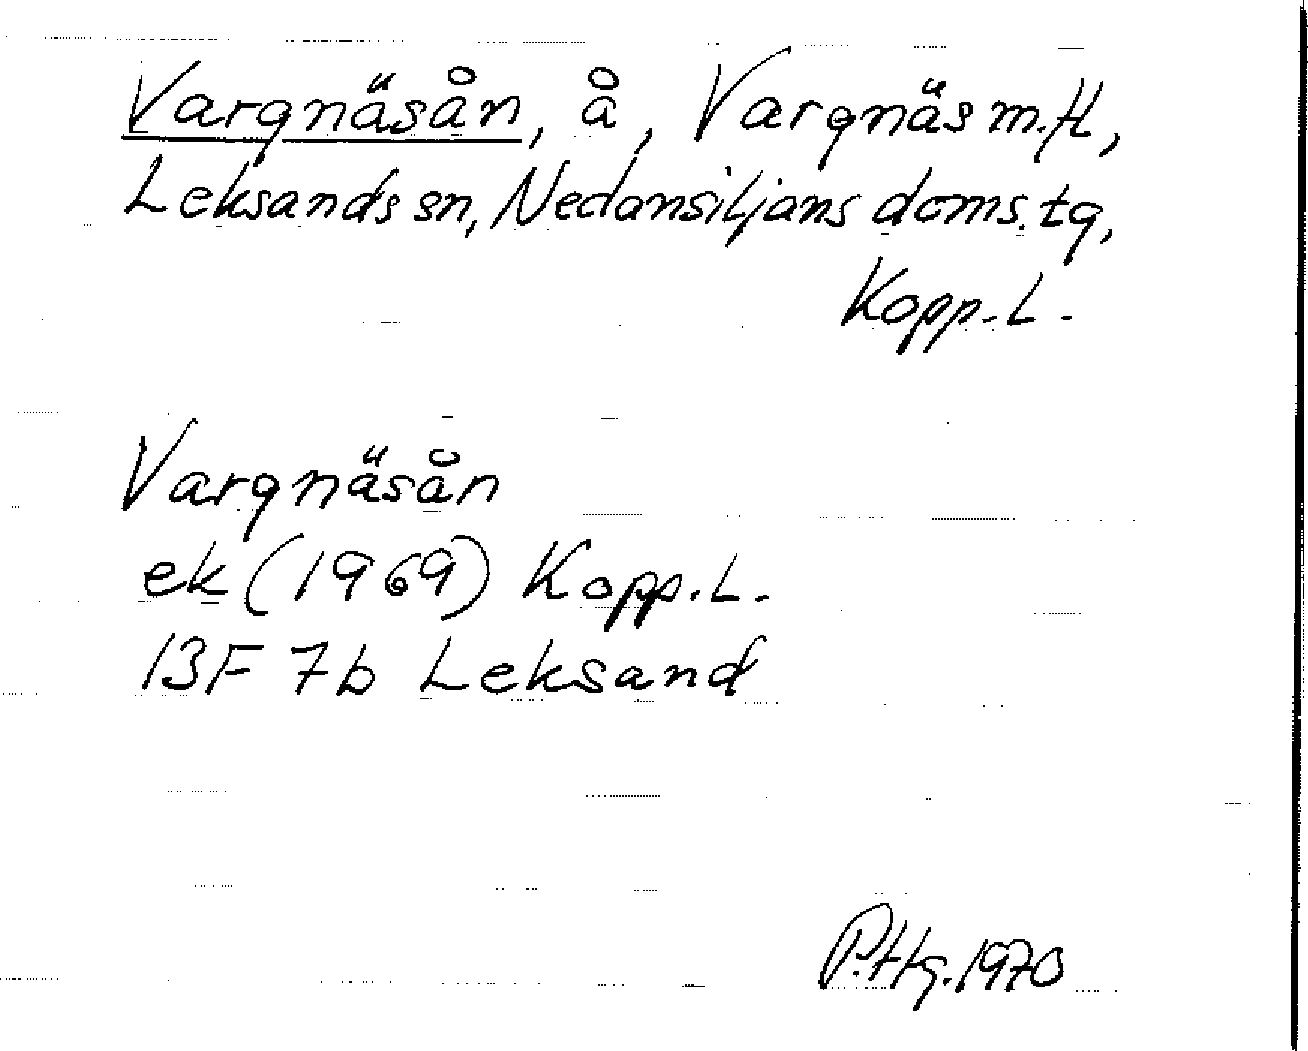 Vargnäsån, å, Vargnäs m.fl,
Leksands sn, Nedansiljans doms.tg,
Kopp.L.
Vargnäsån
ek (1969) Kopp.L.
13F 7b Leksand
P.Hg.1970